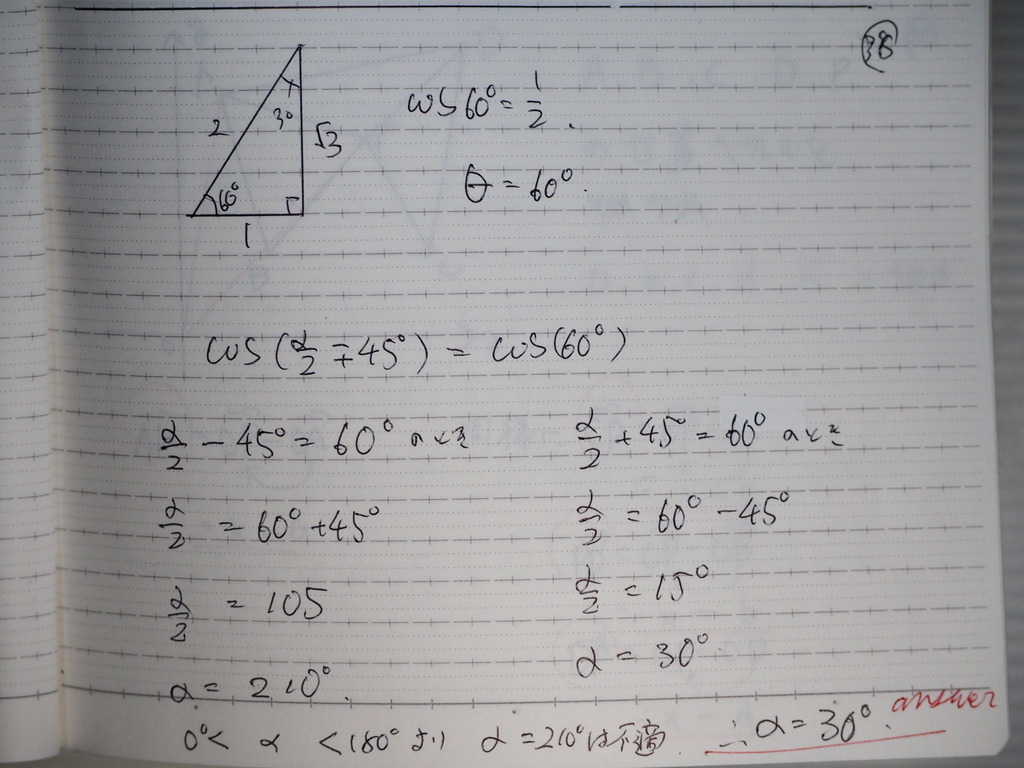 38
2
30
√3
60°
1
cos60° = 1/2.
θ = 60°.
cos(α/2 ∓ 45°) = cos(60°)
α/2 - 45° = 60° のとき
α/2 = 60° + 45°
α/2 = 105
α = 210°.
α/2 + 45° = 60° のとき
α/2 = 60° - 45°
α/2 = 15°
α = 30°
0° < α < 180° より α = 210° は不適. ∴ α = 30°. answer